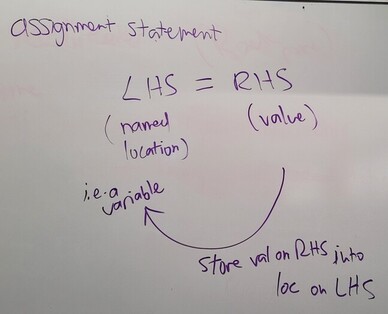 assignment statement
LHS = RHS
(named location)
(value)
i.e. a variable
store val on RHS into
loc on LHS